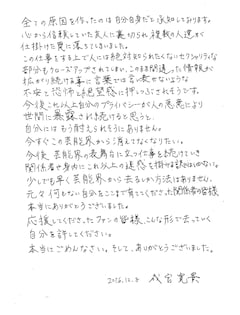 全ての原因を作ったのは自分自身だと承知しております。
心から信頼していた友人に裏切られ、複数の人達が
仕掛けた罠に落ちてしまいました。
この仕事をする上で人には絶対知られたくないセクシャリティな
部分もクローズアップされてしまい、このまま間違った情報が
拡がり続ける事に言葉では言い表せないような
不安と恐怖と絶望感に押しつぶされそうです。
今後これ以上自分のプライバシーが人の悪意により
世間に暴露され続けると思うと、
自分にはもう耐えられそうにありません。
今すぐこの芸能界から消えてなくなりたい。
今後、芸能界の表舞台に立つ仕事を続けていき
関係者や身内にこれ以上の迷惑を掛ける訳にはいかない。
少しでも早く芸能界から去るしか方法はありません。
元々何もない自分をここまで育ててくださった関係者の皆様
本当にありがとうございました。
応援してくださったファンの皆様、こんな形で去っていく
自分を許してください。
本当にごめんなさい。そして、ありがとうございました。
2016.12.9 成宮寛貴